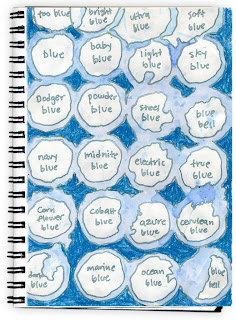 too blue
bright
blue
ultra
blue
soft
blue
blue
baby
blue
light
blue
sky
blue
Dodger
blue
powder
blue
steel
blue
blue
bell
navy
blue
midnite
blue
electric
blue
true
blue
corn
flower
blue
cobalt
blue
azure
blue
cerulean
blue
blue
marine
blue
ocean
blue
blue
bell